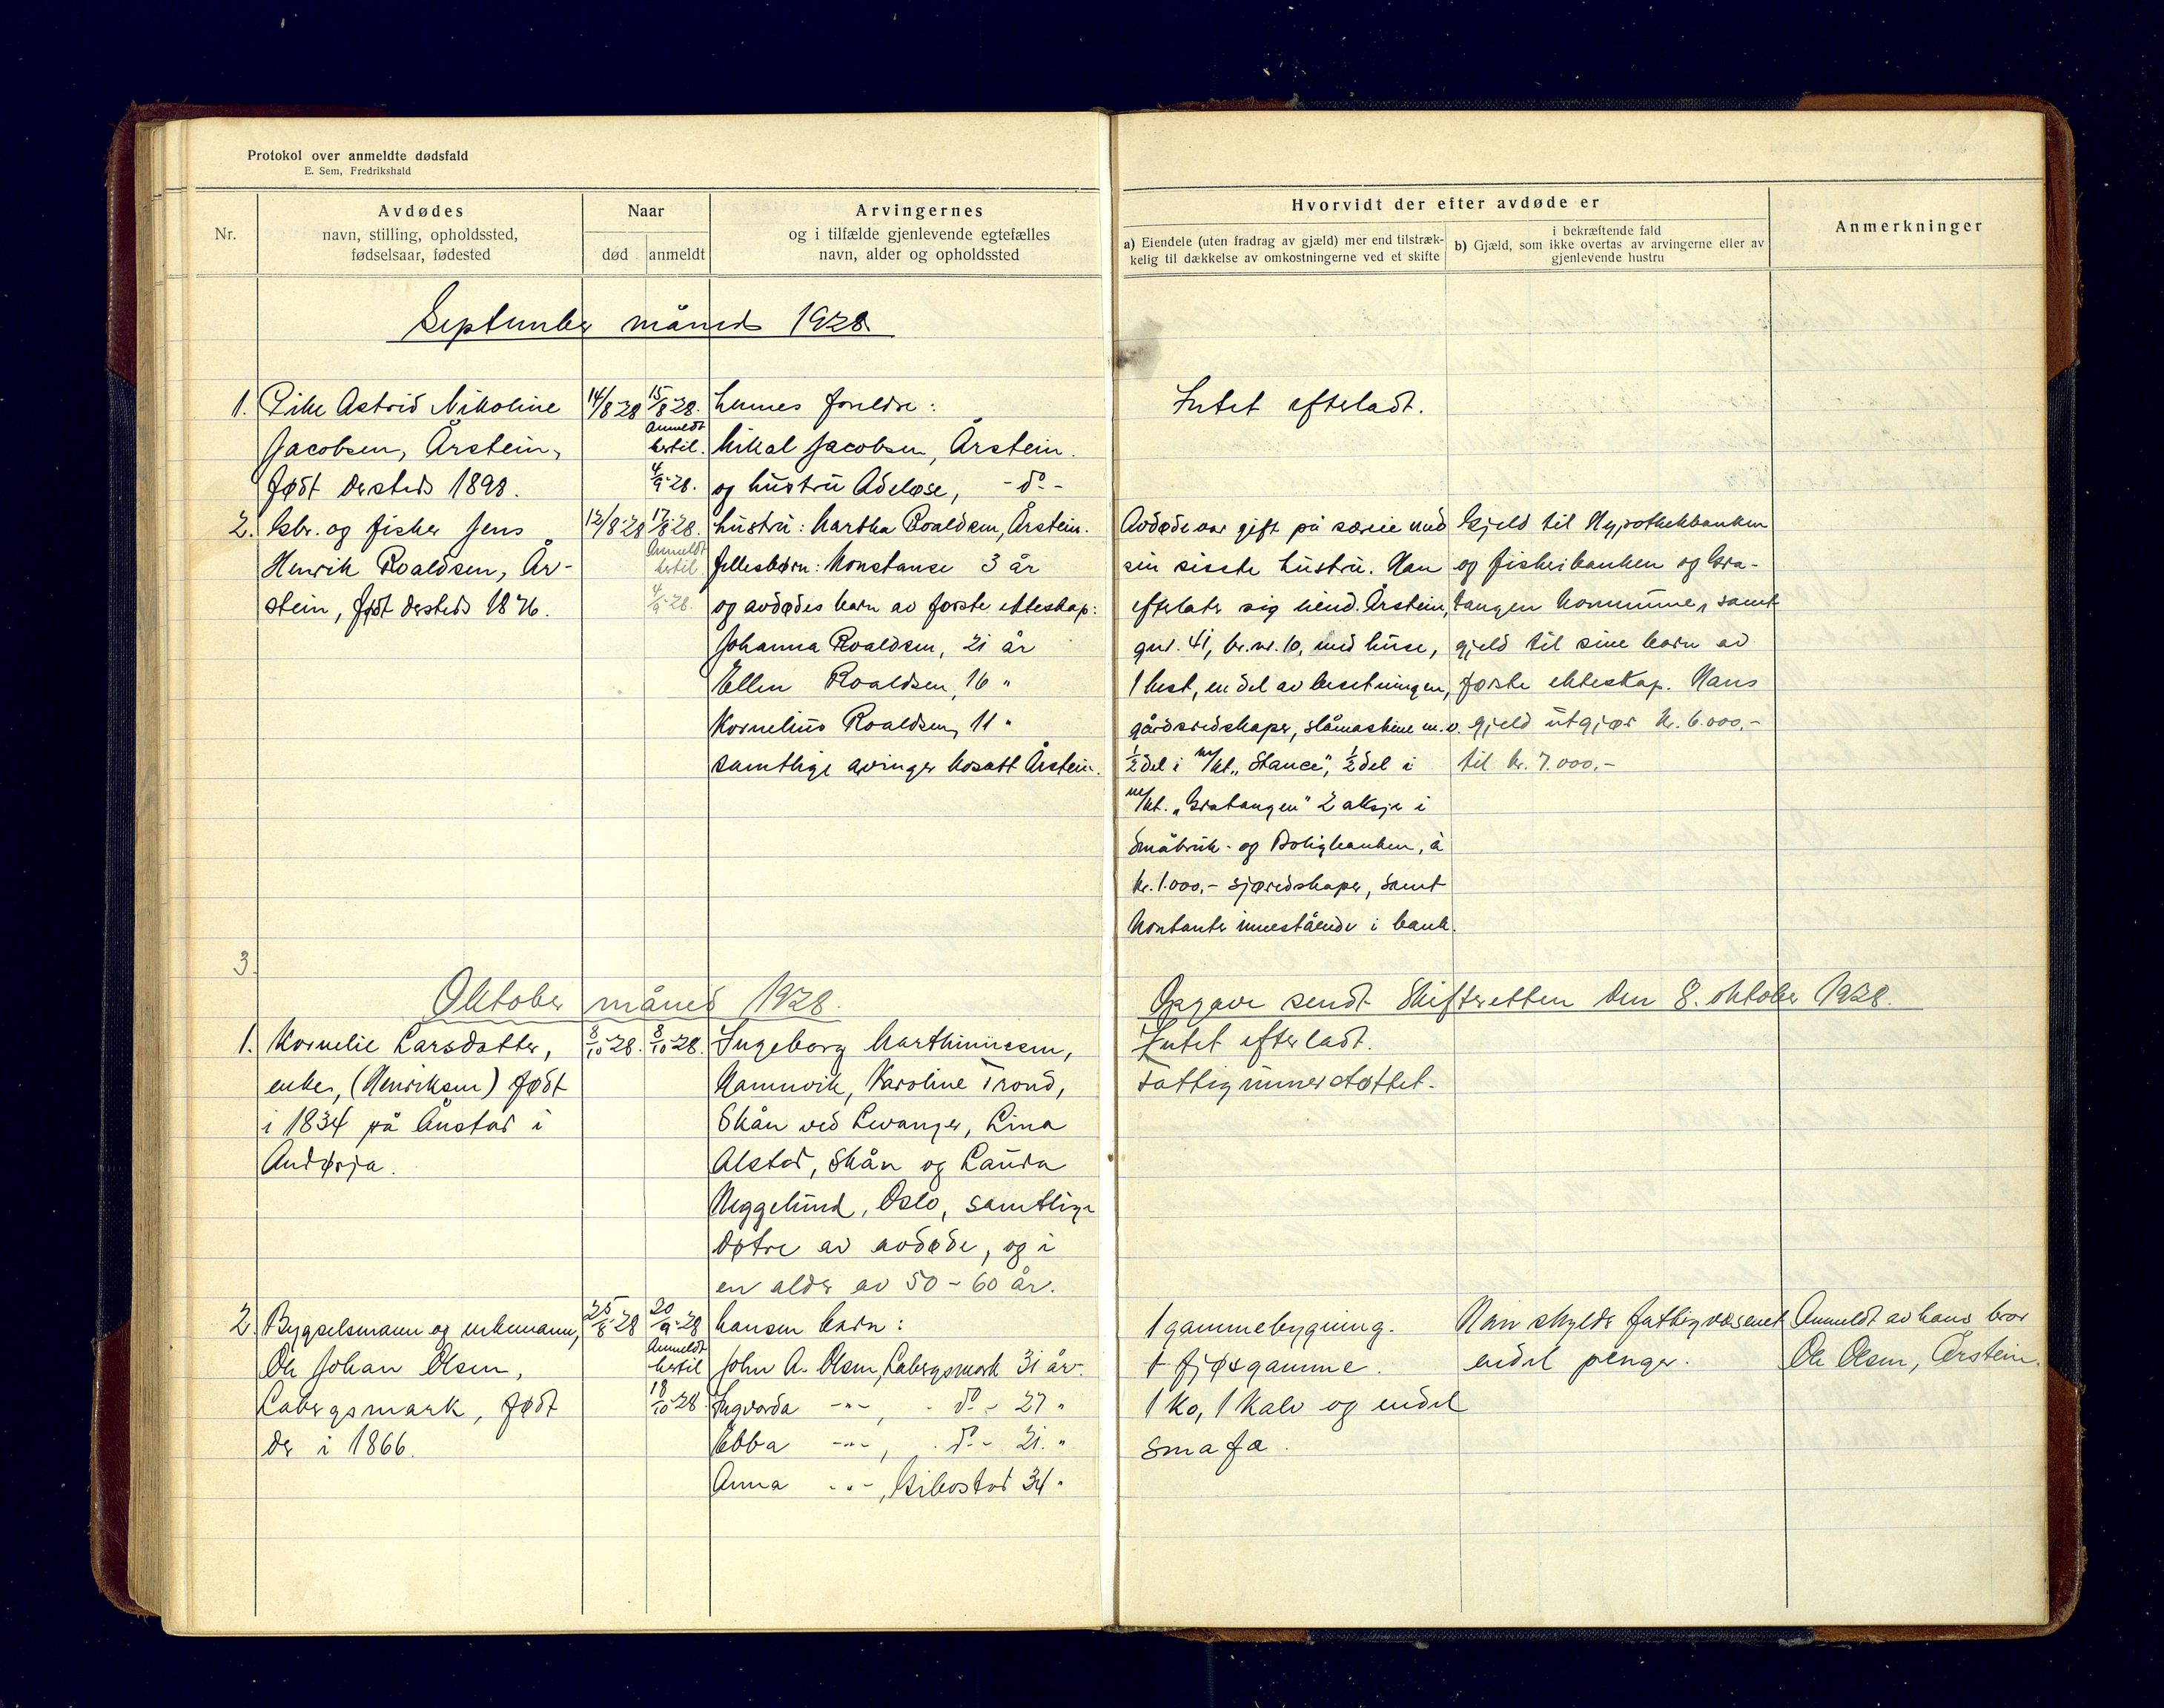 Protokol over anmeldte dødsfald
E. Sem, Fredrikshald
Nr.
Avdødes
navn, stilling, opholdssted,
fødselsaar, fødested
Naar
død
anmeldt
Arvingernes
og i tilfælde gjenlevende egtefælles
navn, alder og opholdssted
Hvorvidt der efter avdøde er
a) Eiendele (uten fradrag av gjæld) mer end tilstræk-
kelig til dækkelse av omkostningerne ved et skifte
i bekræftende fald
b) Gjæld, som ikke overtas av arvingerne eller av
gjenlevende hustru
Anmerkninger
September måned 1928
1. Pike Astrid Nikoline
Jacobsen, Årstein,
født dersteds 1898.
14/8-28
15/8-28.
Anmeldt
hertil.
4/9-28.
Hennes foreldre:
Mikal Jacobsen, Årstein.
og hustru Adelose, -do-
Intet efterladt.
2. Gbr. og fisker Jens
Henrik Roaldsen, År-
stein, født dersteds 1876.
12/8-28
17/8-28.
Anmeldt
hertil.
4/9-28.
Hustru: Martha Roaldsen, Årstein.
Fellesbørn: Konstanse 3 år
og avdødes barn av første ekteskap:
Johanna Roaldsen, 21 år
Ellen Roaldsen, 16 "
Kornelius Roaldsen, 11 "
samtlige arvinger bosatt Årstein.
Avdøde var gift på særeie med
sin siste hustru. Han
efterlater sig eiend. Årstein,
gnr. 41, br.nr. 10, med huse,
1 hest, en del av besetningen,
gårdsredskaper, slåmaskine m.v.
1/2 del i m/kt. "Stance", 1/2 del i
m/kt. "Gratangen" 2 aksjer i
Småbruk- og Boligbanken, à
kr. 1.000,- sjøredskaper, samt
kontanter innestående i bank.
Gjeld til Hypothekbanken
og fiskeribanken og Gra-
tangen kommune, samt
gjeld til sine barn av
første ekteskap. Hans
gjeld utgjør kr. 6.000,-
til kr. 7.000,-
3.
Oktober måned 1928.
Opgave sendt Skifteretten den 8. oktober 1928.
1. Kornelie Larsdatter,
enke, (Henriksen) født
i 1834 på Ånstad i
Andørja.
8/10-28.
8/10-28.
Ingeborg Marthinussen,
Hamnvik, Karoline Trond,
Skån ved Levanger, Lina
Alstad, Skån og Laura
Heggelund, Oslo, samtlige
døtre av avdøde, og i
en alder av 50-60 år.
Intet efterladt.
Fattigunnerstøttet.
2. Bygselsmann og enkemann,
Ole Johan Olsen,
Labergsmark, født
der i 1866.
25/8-28
20/9-28
Anmeldt
hertil
18/10-28
Hansen barn:
John A. Olsen, Labergsmark 31 år.
Ingvarda -"-, - do - 27 "
Ebba -"-, - do - 21. "
Anna -"-, Gibostad 34 "
1 gammebygning.
1 fjøsgamme.
1 ko, 1 kalv og endel
småfæ.
Han skylder fattigvesenet
endel penger.
Anmeldt av hans bror
Ole Olsen, Årstein.